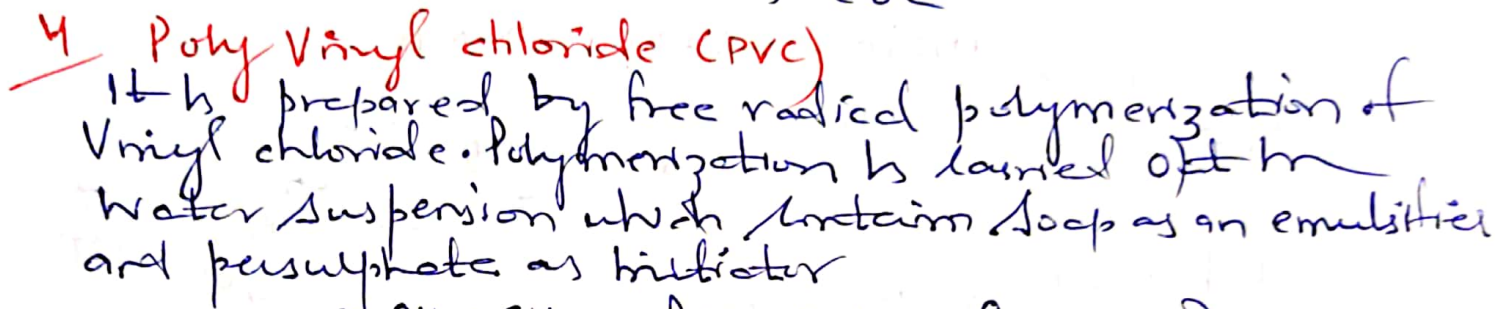 4 Poly Vinyl chloride (PVC)
It is prepared by free radical polymerization of
Vinyl chloride. Polymerization is carried out in
Water suspension which contain soap as an emulsifier
and persulphate as initiator